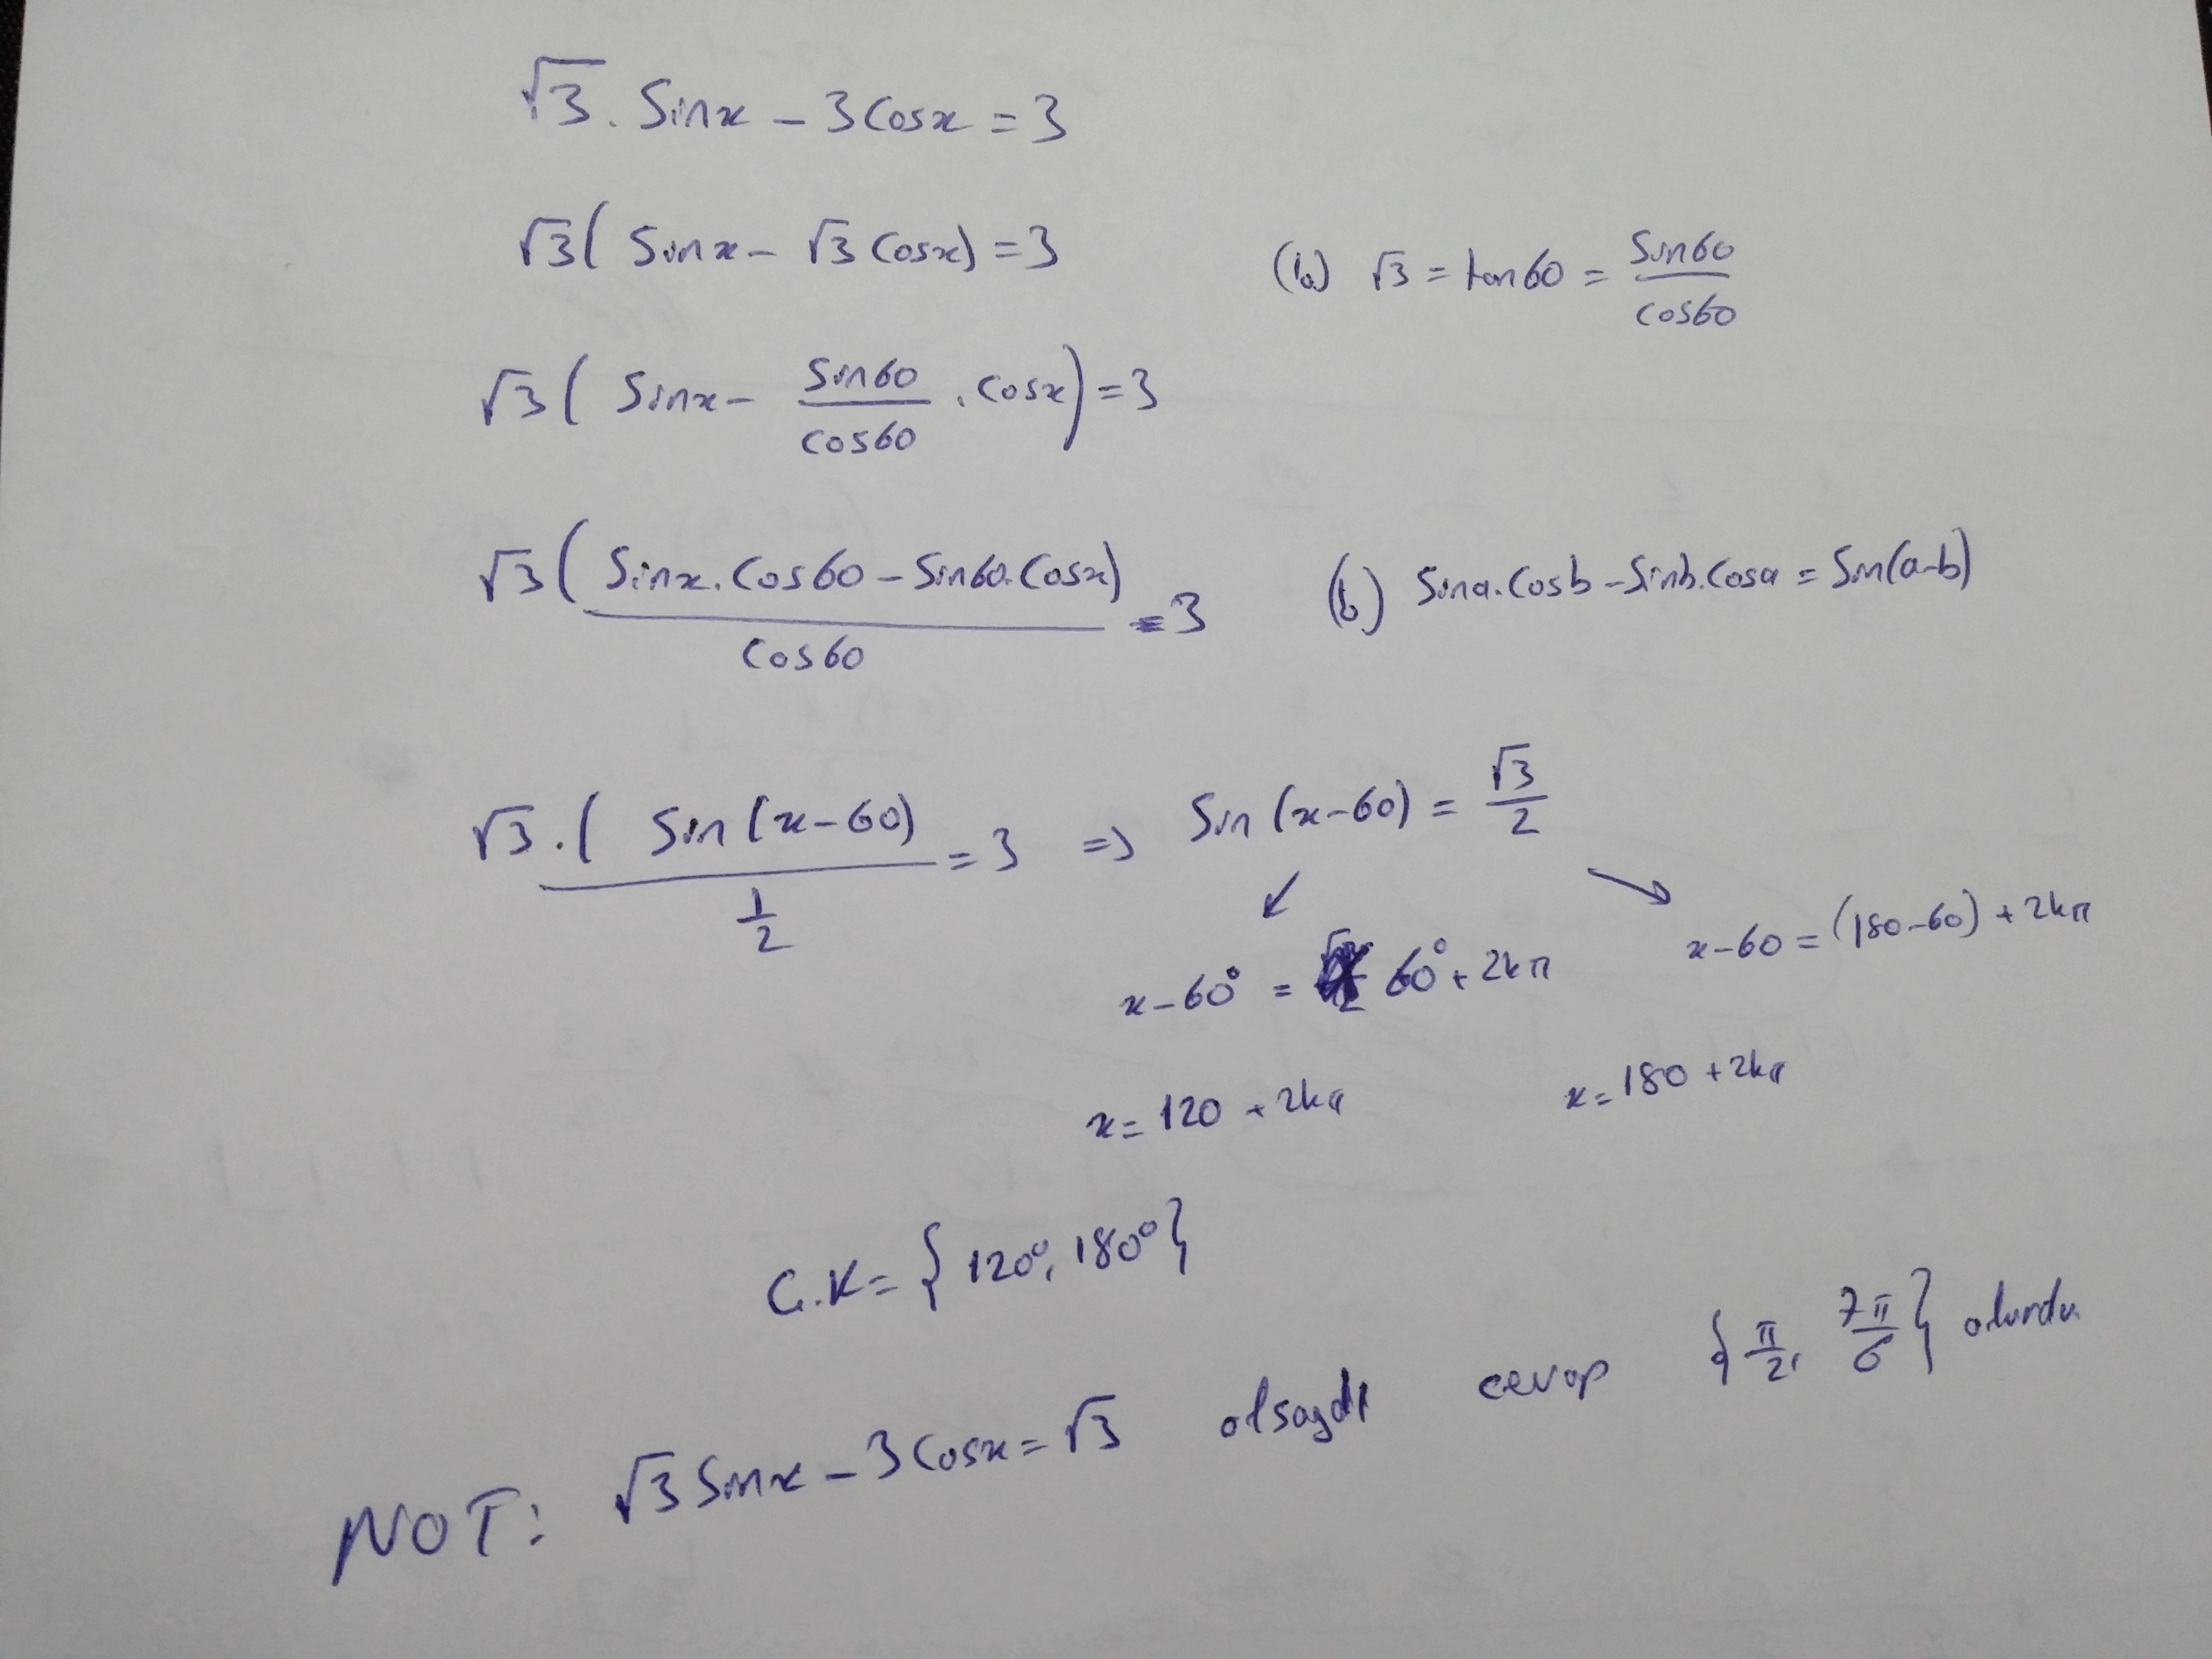 √3 . Sinx - 3Cosx = 3
√3( Sinx - √3 Cosx) = 3
(a) √3 = tan60 = Sin60/cos60
√3( Sinx - Sin60/cos60 . cosx) = 3
√3( Sinx.Cos60 - Sin60.Cosx)/cos60 = 3
(b) Sina.Cosb - Sinb.Cosa = Sin(a-b)
√3.( Sin(x-60)/(1/2) = 3 => Sin(x-60) = √3/2
↙ ↘
x-60° = 60° + 2kπ
x-60 = (180-60) + 2kπ
x = 120 + 2kπ
x = 180 + 2kπ
Ç.K = { 120°, 180° }
NOT: √3 Sinx - 3Cosx = √3 olsaydı cevap { π/2, 7π/6 } olurdu